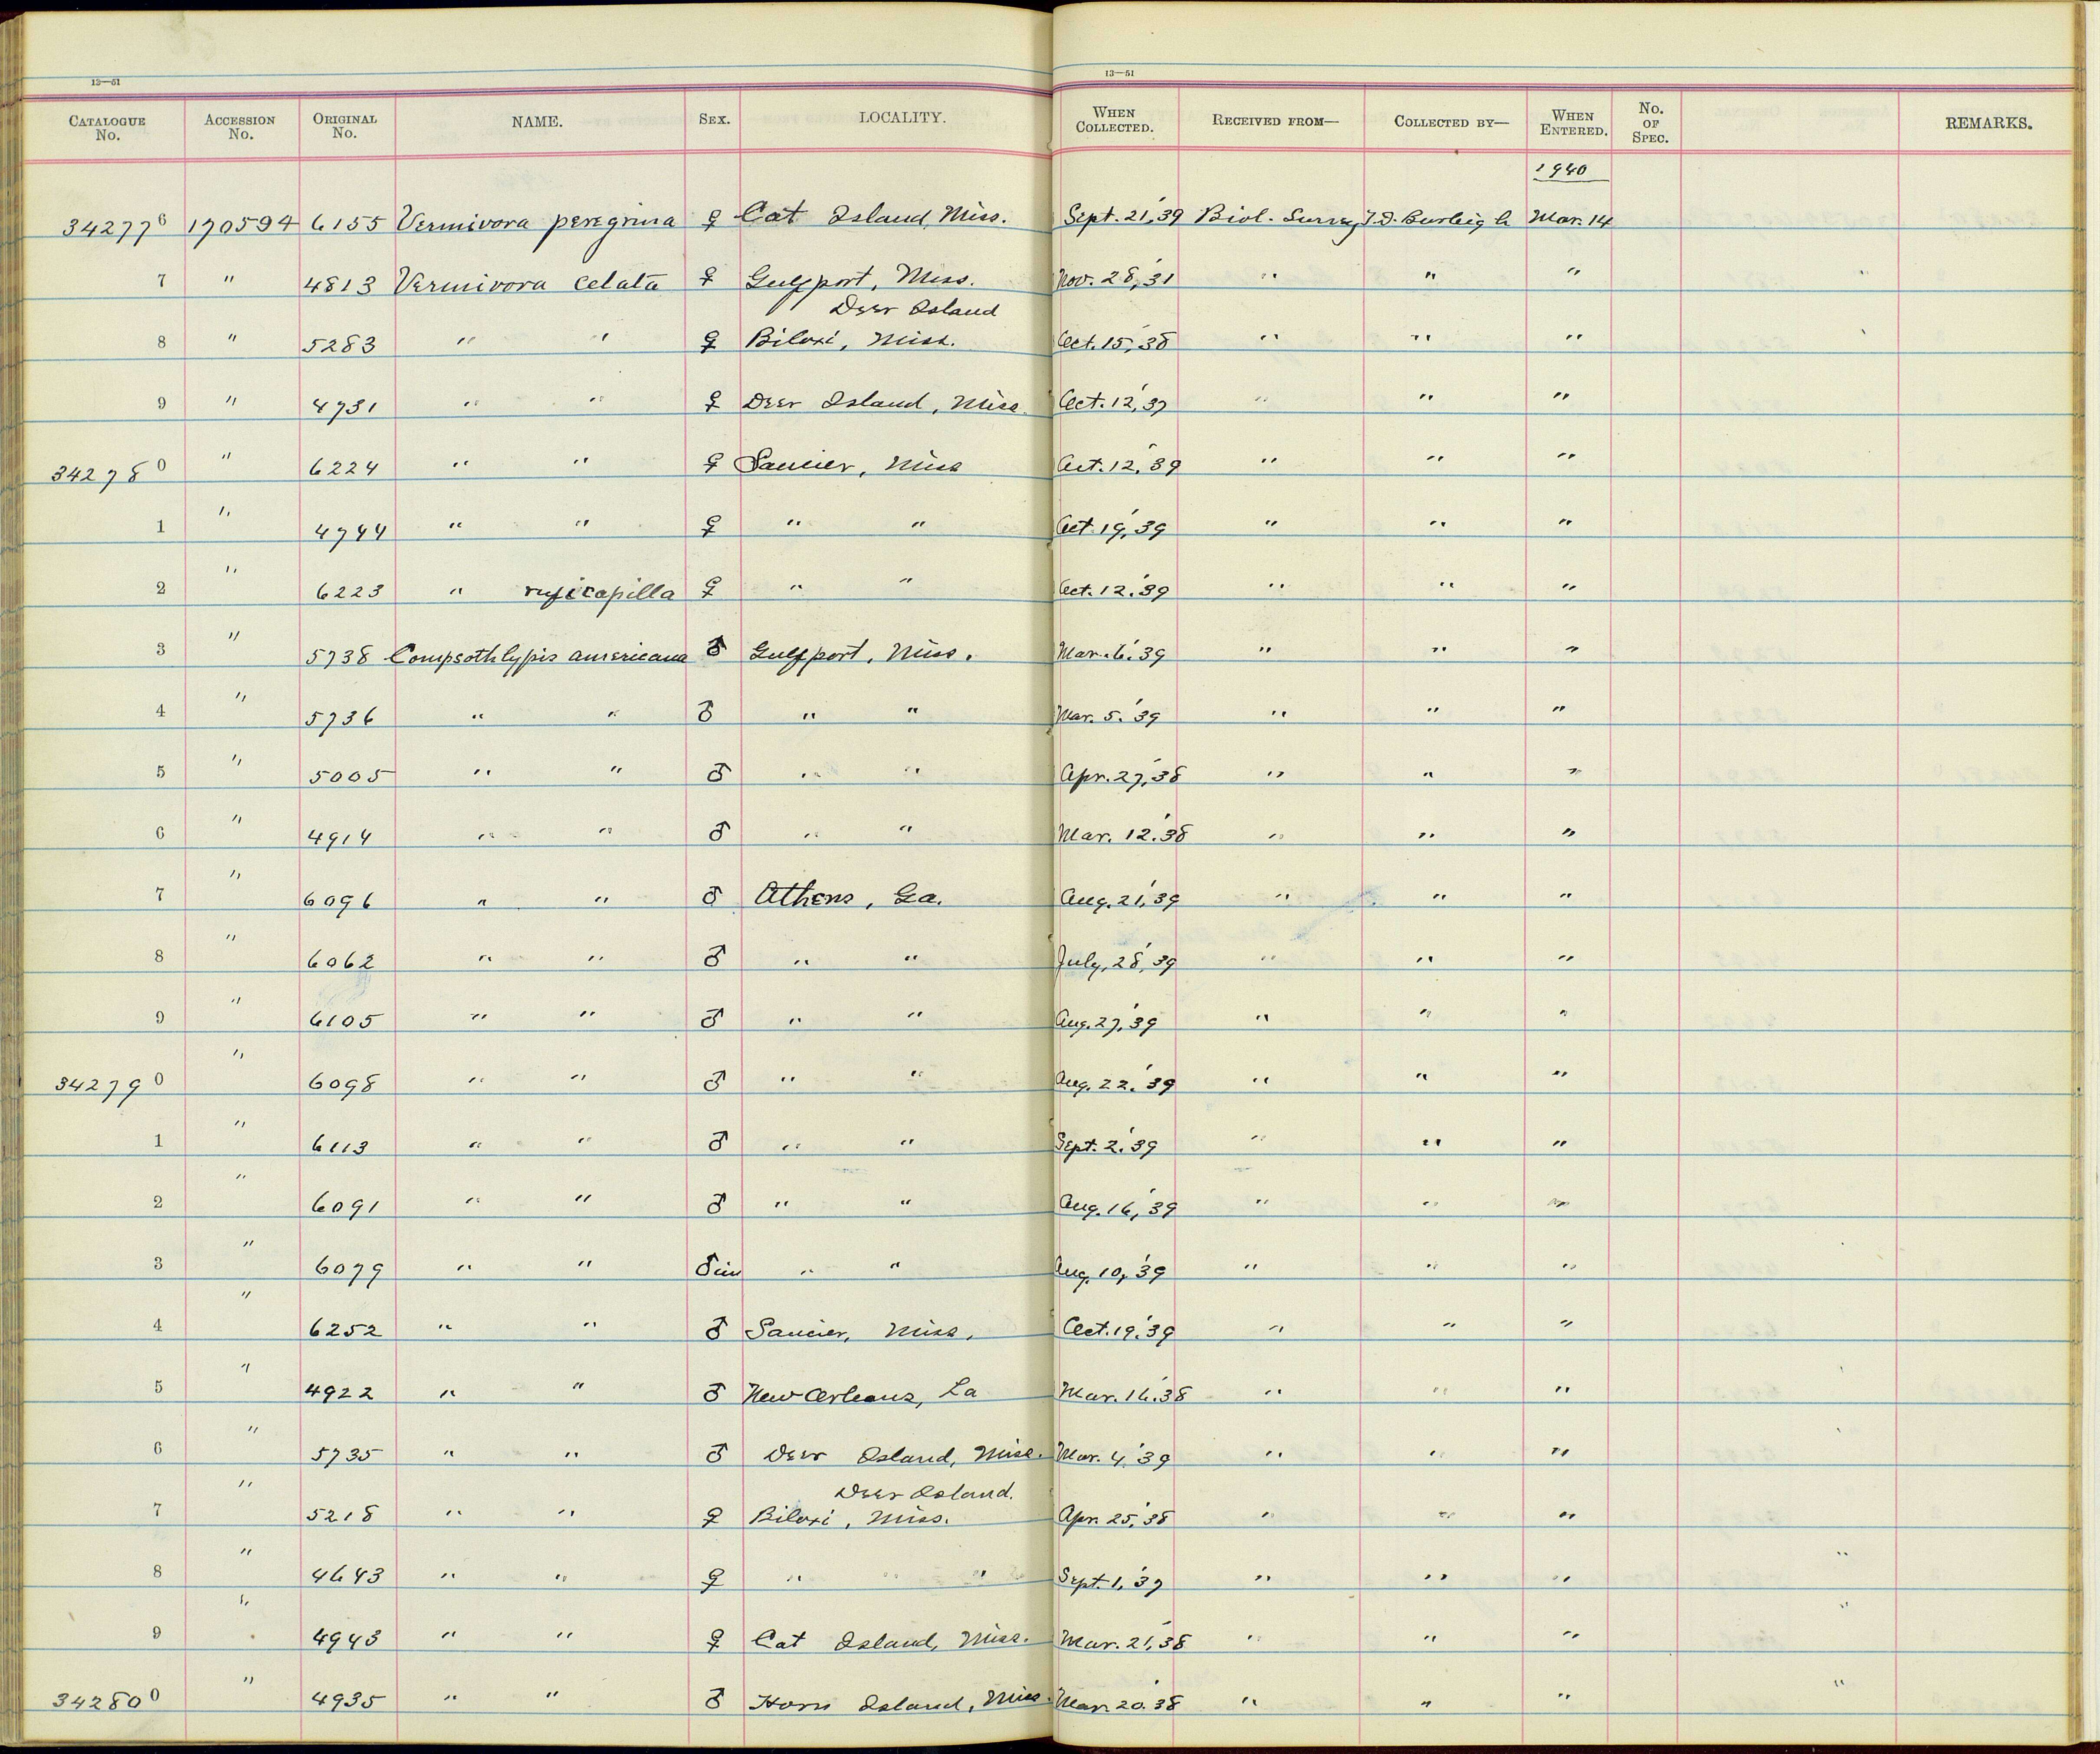 13—51 13—51
CATALOGUE No. ACCESSION No. ORIGINAL No. NAME. SEX. LOCALITY. WHEN COLLECTED. RECEIVED FROM— COLLECTED BY— WHEN ENTERED. No. OF SPEC. REMARKS.
1940
342776 170594 6155 Vermivora peregrina ♀ Cat Island, Miss. Sept. 21,'39 Biol. Survey T.D. Burleigh Mar. 14
7 " 4813 Vermivora celata ♀ Gulfport, Miss. Nov. 28,'31 " " "
Deer Island
8 " 5283 " " ♀ Biloxi, Miss. Oct. 15,'38 " " "
9 " 4731 " " ♀ Deer Island, Miss. Oct. 12,'37 " " "
342780 " 6224 " " ♀ Saucier, Miss Oct. 12,'39 " " "
1 " 4744 " " ♀ " " Oct. 19,'39 " " "
2 " 6223 " ruficapilla ♀ " " Oct. 12.'39 " " "
3 " 5738 Compsothlypis americana ♂ Gulfport, Miss. Mar. 6.'39 " " "
4 " 5736 " " ♂ " " Mar. 5.'39 " " "
5 " 5005 " " ♂ " " Apr. 27,'38 " " "
6 " 4914 " " ♂ " " Mar. 12.'38 " " "
7 " 6096 " " ♂ Athens, Ga. Aug. 21,'39 " " "
8 " 6062 " " ♂ " " July, 28,'39 " " "
9 " 6105 " " ♂ " " Aug. 27,'39 " " "
342790 " 6098 " " ♂ " " Aug. 22.'39 " " "
1 " 6113 " " ♂ " " Sept. 2.'39 " " "
2 " 6091 " " ♂ " " Aug. 16,'39 " " "
3 " 6079 " " ♂im " " Aug. 10,'39 " " "
4 " 6252 " " ♂ Saucier, Miss. Oct. 19.'39 " " "
5 " 4922 " " ♂ New Orleans, La Mar. 16.'38 " " "
6 " 5735 " " ♂ Deer Island, Miss. Mar. 4,'39 " " "
Deer Island.
7 " 5218 " " ♀ Biloxi, Miss. Apr. 25,'38 " " "
8 " 4643 " " ♀ " " Sept. 1,'37 " " " "
9 " 4943 " " ♀ Cat Island, Miss. Mar. 21,'38 " " " "
342800 " 4935 " " ♂ Horn Island, Miss. Mar. 20.'38 " " " "